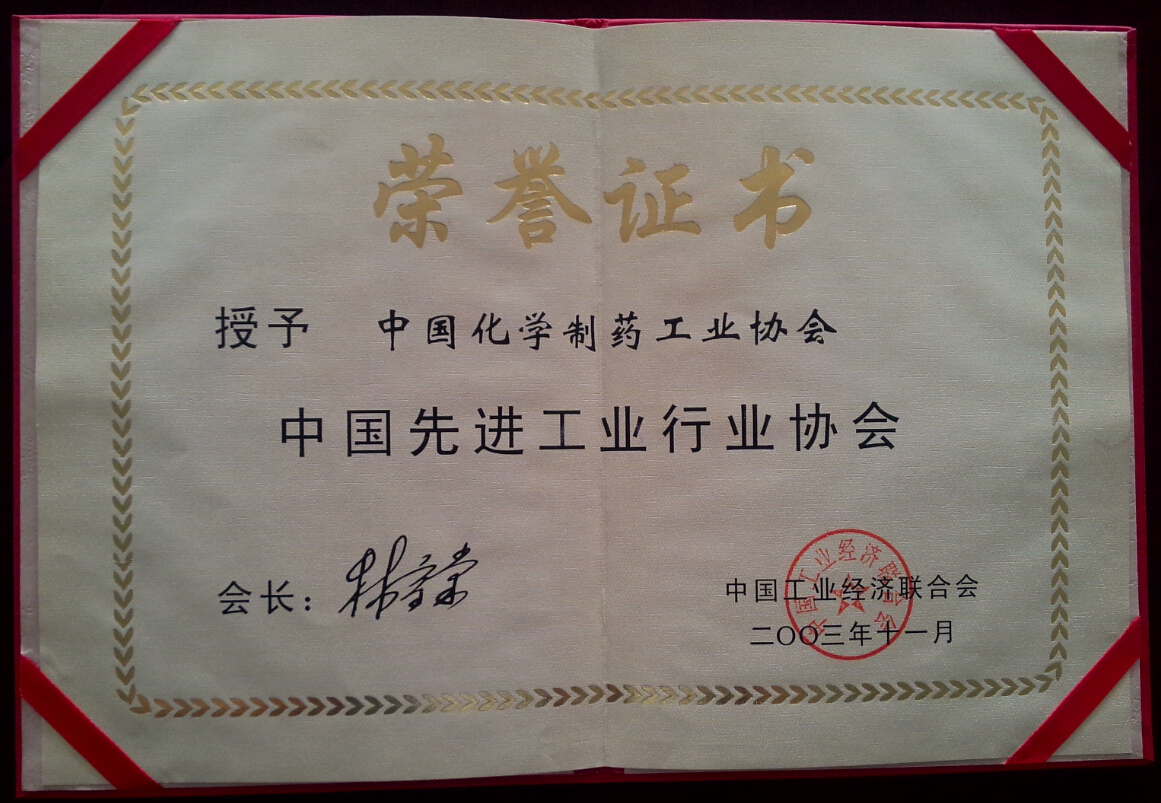 荣誉证书
授予 中国化学制药工业协会
中国先进工业行业协会
会长：林宗棠
中国工业经济联合会
二〇〇三年十一月
中国工业经济联合会